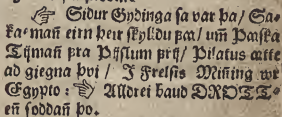 ☞ Sidur Gydinga sa var þa / Sa-
ka-mañ eirn þeir skylldu paa / um Paaska
Tijmañ fra Pijslum frij / Pilatus ætte
ad giegna þvi / I Frelsis Miñing wr
Egypto: ☞ Alldrei baud DROTT-
eñ soddañ þo.